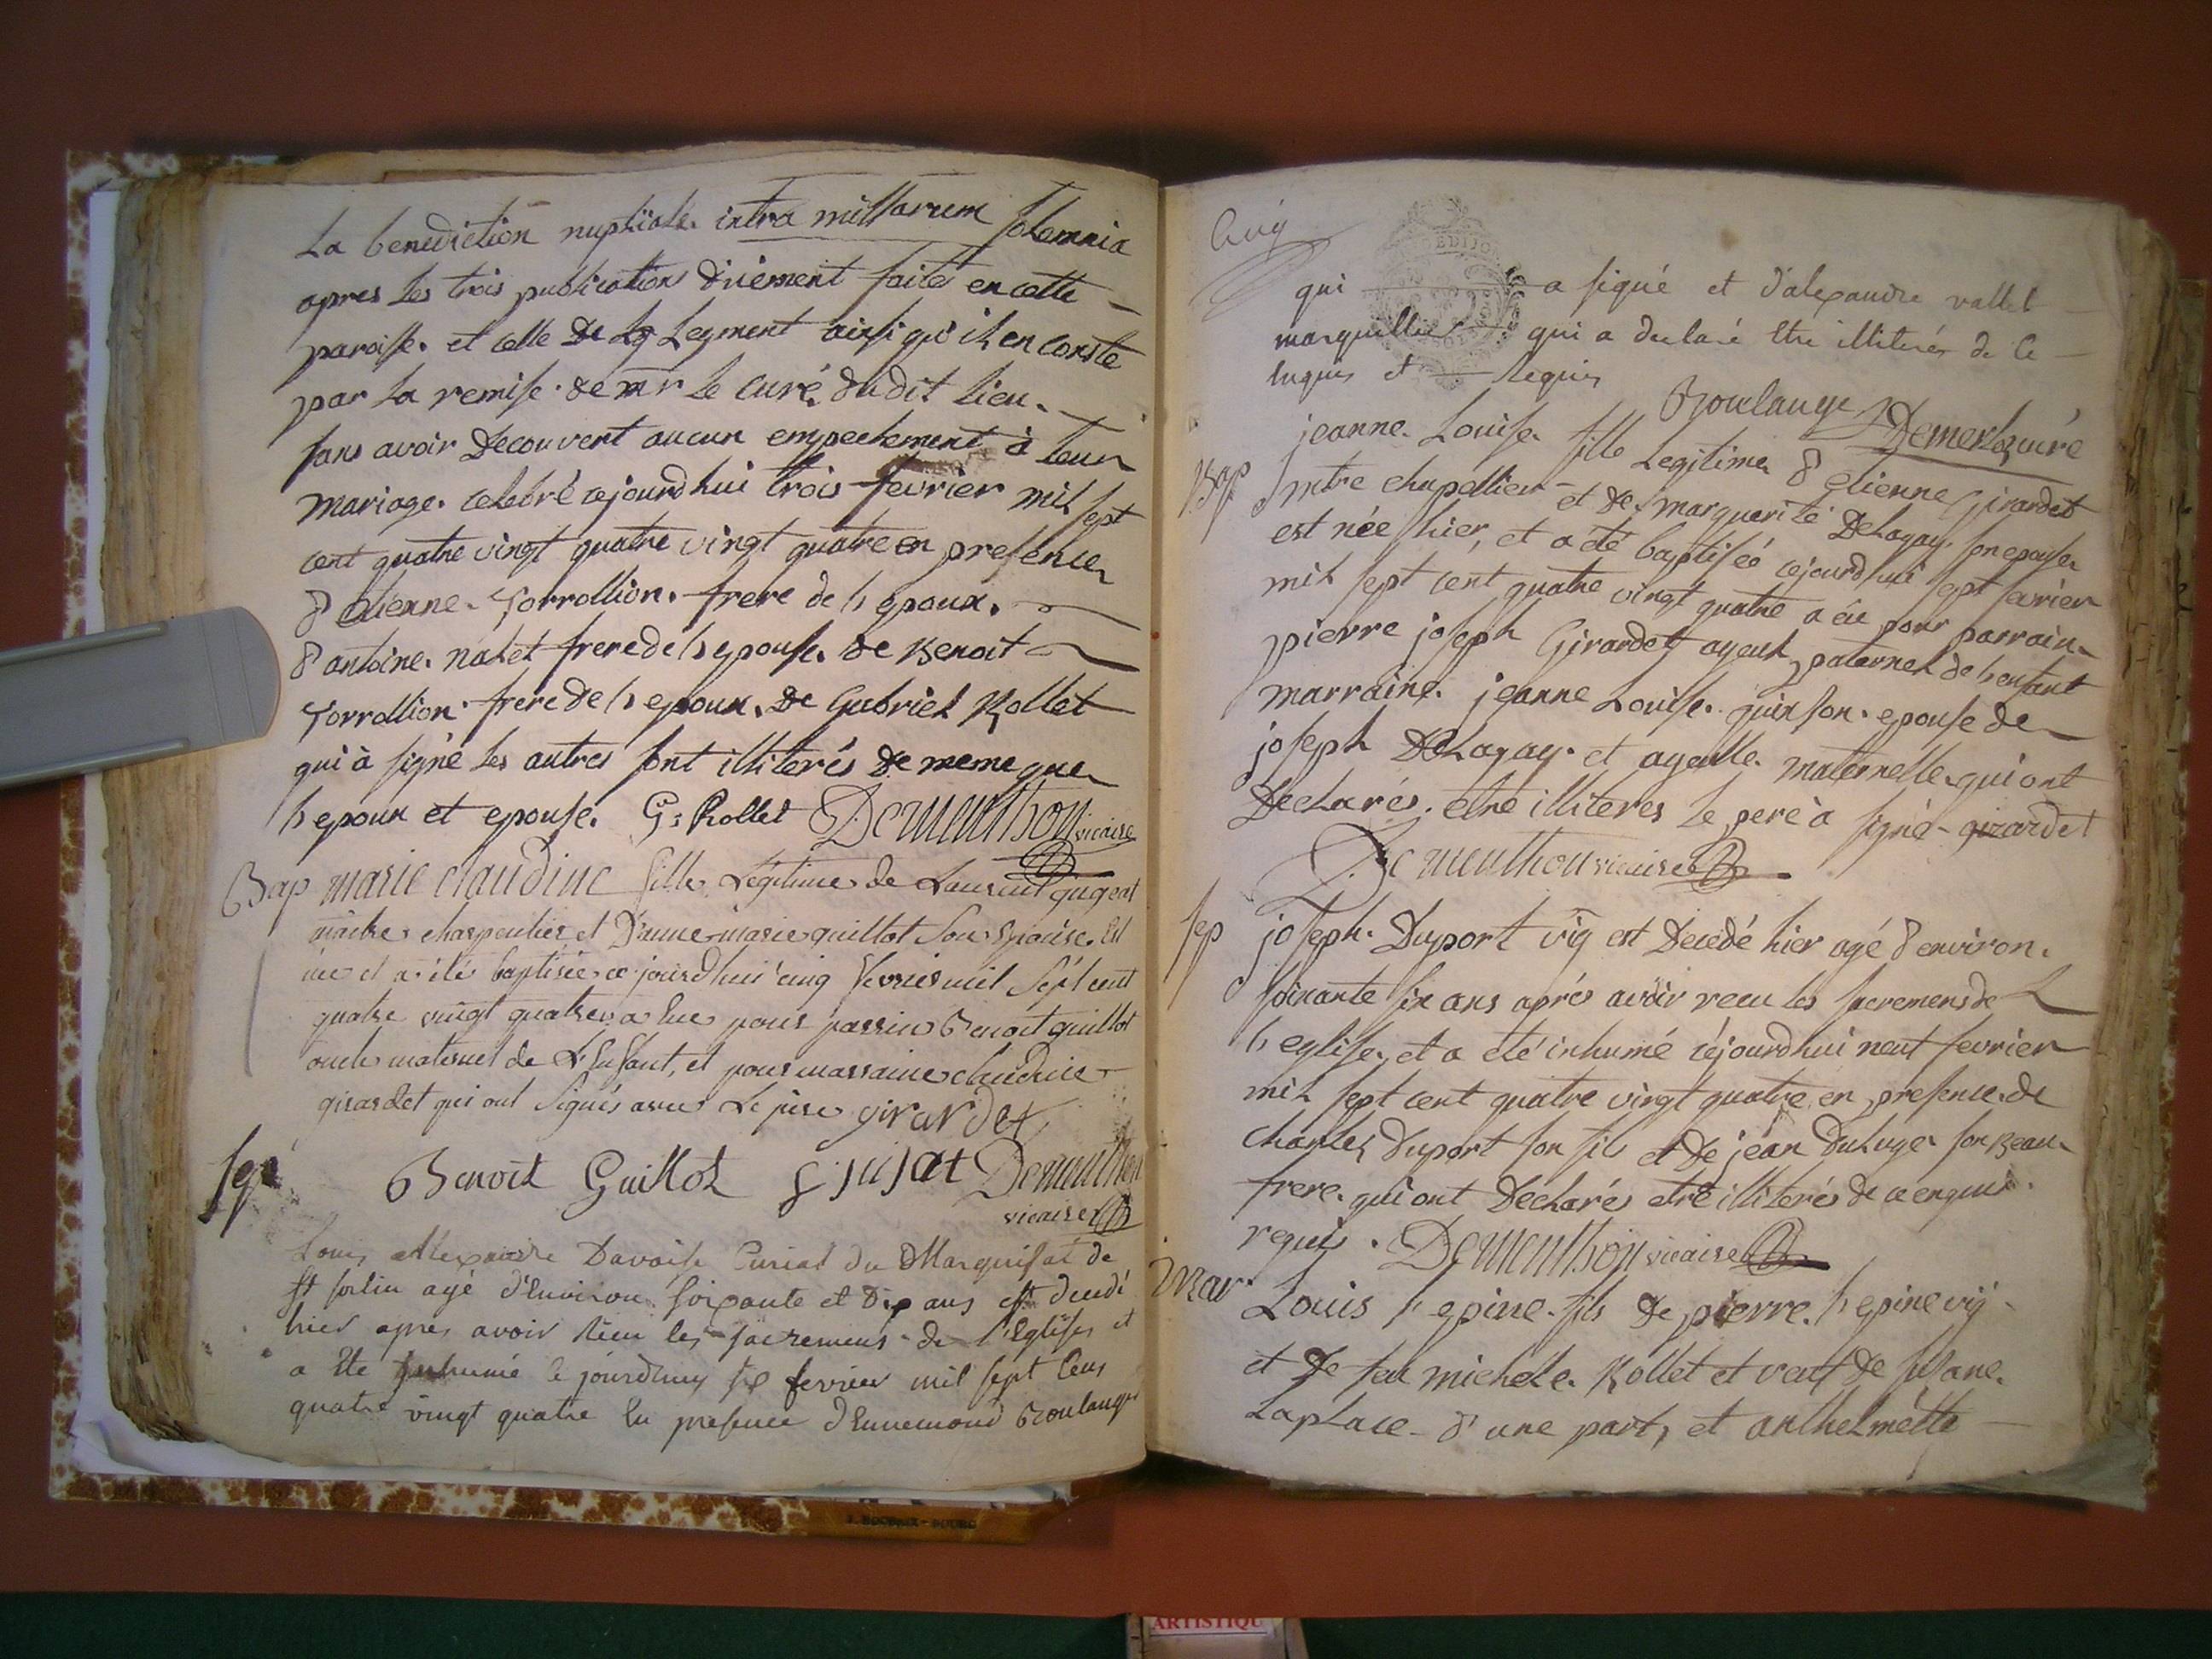 La benediction nuptiale intra missarum solemnia
apres les trois publications düement faite en cette
paroisse et celle de Legment ainsi qu'il en conste
par la remise de mr le curé dudit lieu
sans avoir decouvert aucun empechement à leur
mariage celebré cejourdhui trois fevrier mil sept
cent quatre vingt quatre vingt quatre en presence
d'etienne Sorrollion frere de l'epoux
d'antoine nalet frere de l'epouse de Benoit
Sorrollion frere de l'epoux de Gabriel Rollet
qui à signé les autres sont illiterés de meme que
l'epoux et epouse G: Rollet Dementhon vicaire
Bap marie claudine fille Légitime de Laurent gugeat
maitre charpentier et D'anne marie guillot son Epouse Est
née et a été baptisée ce jourd'hui cinq fevrier mil Sept cent
quatre vingt quatre a Eue pour parrin Benoit guillot
oncle maternel de L'Enfant, et pour marraine claudine
girardet qui ont Signés avec Le pere girardet
Sep
Benoit Guillot Dementhon
vicaire
Louis Alexandre Davoise Curial du Marquisat de
St sorlin agé d'Environ soixante et dix ans est decedé
hier apres avoir recu les sacremens de l'Eglise et
a ete inhumé ce jourdhuy six fevrier mil sept Cens
quatre vingt quatre En presence d'Ennemond Boulange
qui a signé et d'alexandre vallet
marguillier qui a declaré Etre illiterés de Ce
enquis et requis
Boulange Demerloz curé
Bap jeanne Louise fille Legitime d'etienne Girardet
mtre chapellier et de marguerite Delagay son epouse
est née hier, et a été baptiséé cejourdhui sept fevrier
mil sept cent quatre vingt quatre a éu pour parrain
pierre joseph Girardet ayeul paternel de l'enfant
marraine jeanne Louise quinson epouse de
joseph Delagay et ayeulle maternelle qui ont
Declarés etre illiteres le pere à signé girardet
Dementhon vicaire
Sep joseph Duport vig est Decedé hier agé d'environ
soixante six ans aprés avoir recu les sacremens de
l'eglise, et a été inhumé cejourdhui neuf fevrier
mil sept cent quatre vingt quatre en presence de
charles duport son fils et de jean duluge son Beau
frere qui ont Declarés etre illiterés de ce enquis
requis Dementhon vicaire
Mar
Louis l'epine fils de pierre l'epine vig
et de feu michelle Rollet et veuf de susane
Laplace d'une part, et anthelmette
ARTISTIQU